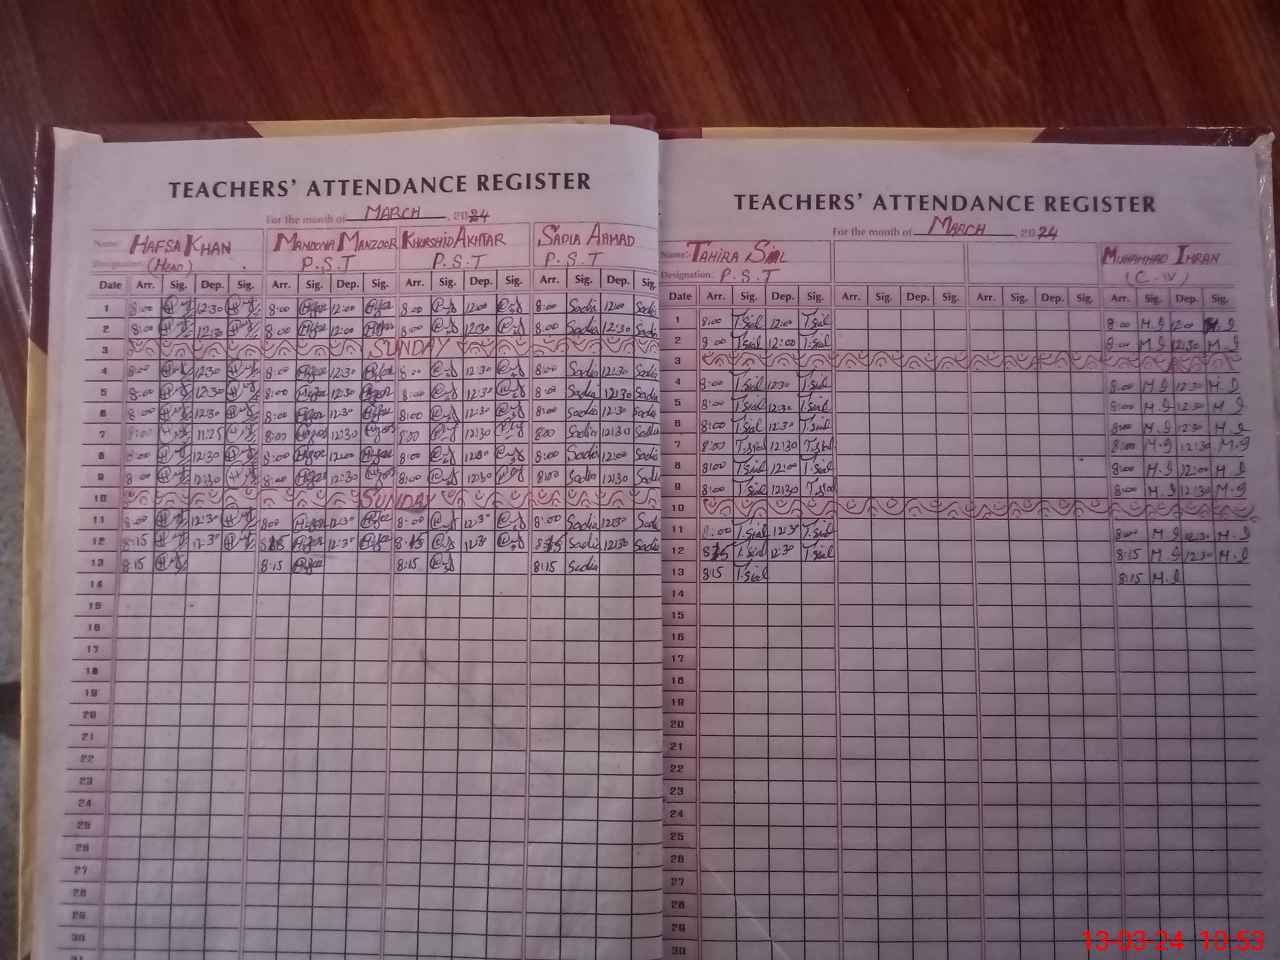 TEACHERS' ATTENDANCE REGISTER
For the month of MARCH, 2024
Name: HAFSA KHAN MAMOONA MANZOOR KHURSHID AKHTAR SADIA AHMAD
Designation: (HEAD) P.S.T P.S.T P.S.T
Date Arr. Sig. Dep. Sig. Arr. Sig. Dep. Sig. Arr. Sig. Dep. Sig. Arr. Sig. Dep. Sig.
1 8:00 12:30 8:00 12:00 8:00 12:00 8:00 Sadia 12:00 Sadia
2 8:00 12:30 8:00 12:00 8:00 12:30 8:00 Sadia 12:30 Sadia
3 SUNDAY
4 8:00 12:30 8:00 12:30 8:00 12:30 8:00 Sadia 12:30 Sadia
5 8:00 12:30 8:00 12:30 8:00 12:30 8:00 Sadia 12:30 Sadia
6 8:00 12:30 8:00 12:30 8:00 12:30 8:00 Sadia 12:30 Sadia
7 8:00 11:25 8:00 12:30 8:00 12:30 8:00 Sadia 12:30 Sadia
8 8:00 12:30 8:00 12:00 8:00 8:00 Sadia 12:00 Sadia
9 8:00 12:30 8:00 12:30 8:00 12:30 8:00 Sadia 12:30 Sadia
10 SUNDAY
11 8:00 12:30 8:00 12:30 8:00 12:30 8:00 Sadia 12:30 Sadia
12 8:15 12:30 8:15 12:30 8:15 12:30 8:15 Sadia 12:30 Sadia
13 8:15 8:15 8:15 8:15 Sadia
14
15
16
17
18
19
20
21
22
23
24
25
26
27
28
29
30
31
TEACHERS' ATTENDANCE REGISTER
For the month of MARCH 2024
Name: TAHIRA SIAL MUHAMMAD IMRAN
Designation: P.S.T (C.W)
Date Arr. Sig. Dep. Sig. Arr. Sig. Dep. Sig. Arr. Sig. Dep. Sig. Arr. Sig. Dep. Sig.
1 8:00 T.Sial 12:00 T.Sial 8:00 M.I 12:00 M.I
2 8:00 T.Sial 12:00 T.Sial 8:00 M.I 12:30 M.I
3
4 8:00 T.Sial 12:30 T.Sial 8:00 M.I 12:30 M.I
5 8:00 T.Sial 12:30 T.Sial 8:00 M.I 12:30 M.I
6 8:00 T.Sial 12:30 T.Sial 8:00 M.I 12:30 M.I
7 8:00 T.Sial 12:30 T.Sial 8:00 M.I 12:30 M.I
8 8:00 T.Sial 12:00 T.Sial 8:00 M.I 12:00 M.I
9 8:00 T.Sial 12:30 T.Sial 8:00 M.I 12:30 M.I
10
11 8:00 T.Sial 12:30 T.Sial 8:00 M.I 12:30 M.I
12 8:15 T.Sial 12:30 T.Sial 8:15 M.I 12:30 M.I
13 8:15 T.Sial 8:15 M.I
14
15
16
17
18
19
20
21
22
23
24
25
26
27
28
29
30
13-03-24 10:53